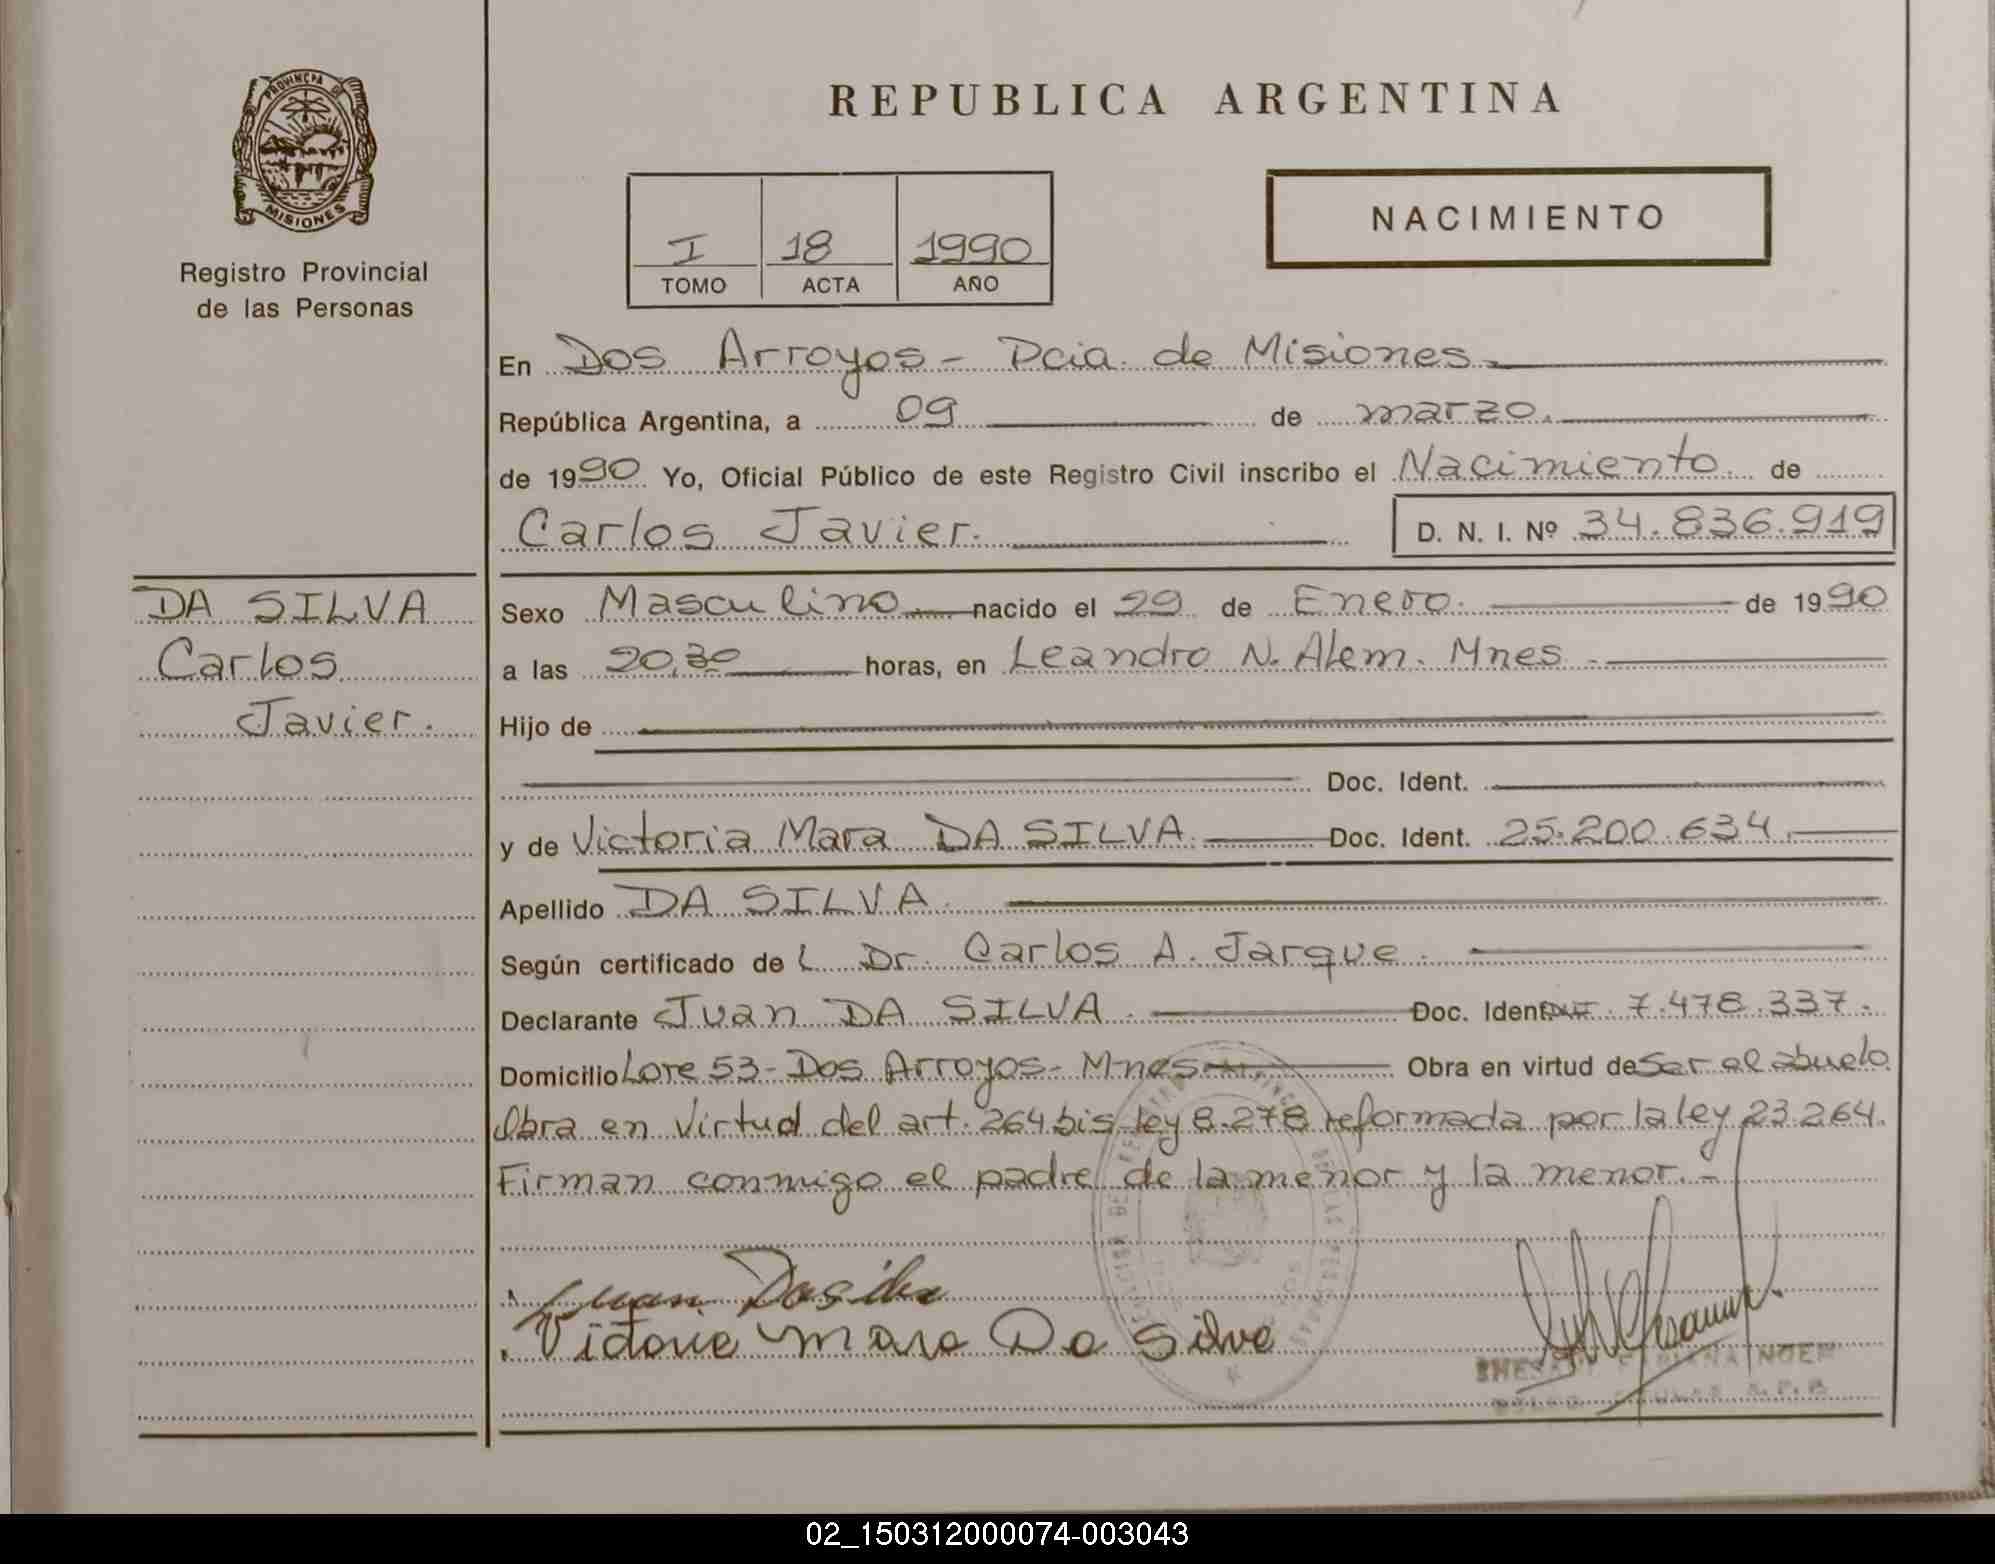 PROVINCIA DE
MISIONES
Registro Provincial
de las Personas
REPUBLICA ARGENTINA
I 18 1990
TOMO ACTA AÑO
NACIMIENTO
En Dos Arroyos - Pcia. de Misiones.
República Argentina, a 09 de marzo.
de 1990 Yo, Oficial Público de este Registro Civil inscribo el Nacimiento de
Carlos Javier. D. N. I. Nº 34.836.919
DA SILVA
Carlos
Javier.
Sexo Masculino nacido el 29 de Enero. de 1990
a las 20,30 horas, en Leandro N. Alem. Mnes
Hijo de
Doc. Ident.
y de Victoria Mara DA SILVA. Doc. Ident. 25.200.634
Apellido DA SILVA.
Según certificado de L Dr. Carlos A. Jarque.
Declarante Juan DA SILVA. Doc. Ident DNI. 7.478.337.
Domicilio Lote 53- Dos Arroyos- Mnes Obra en virtud de Ser el abuelo
Obra en virtud del art. 264 bis ley 8.278 reformada por la ley 23.264.
Firman conmigo el padre de la menor y la menor.-
Juan Dasilva
Victoria Mara Da Silva
02_150312000074-003043